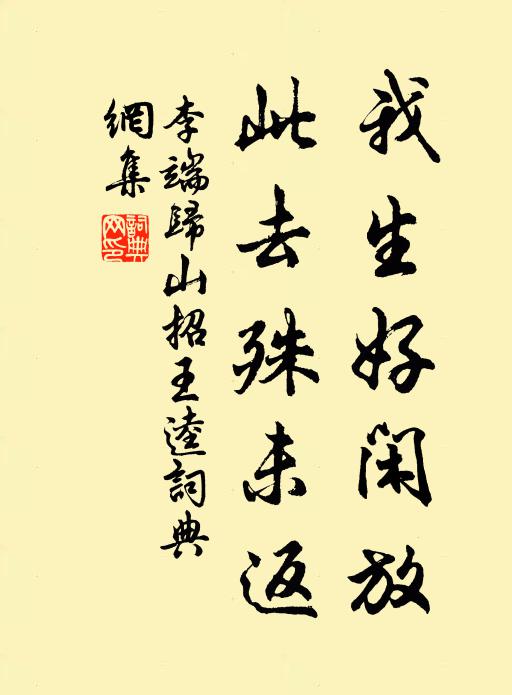 我生好闲放
此去殊未返
李端歸山招王逵詞典
網集
詞典
网印